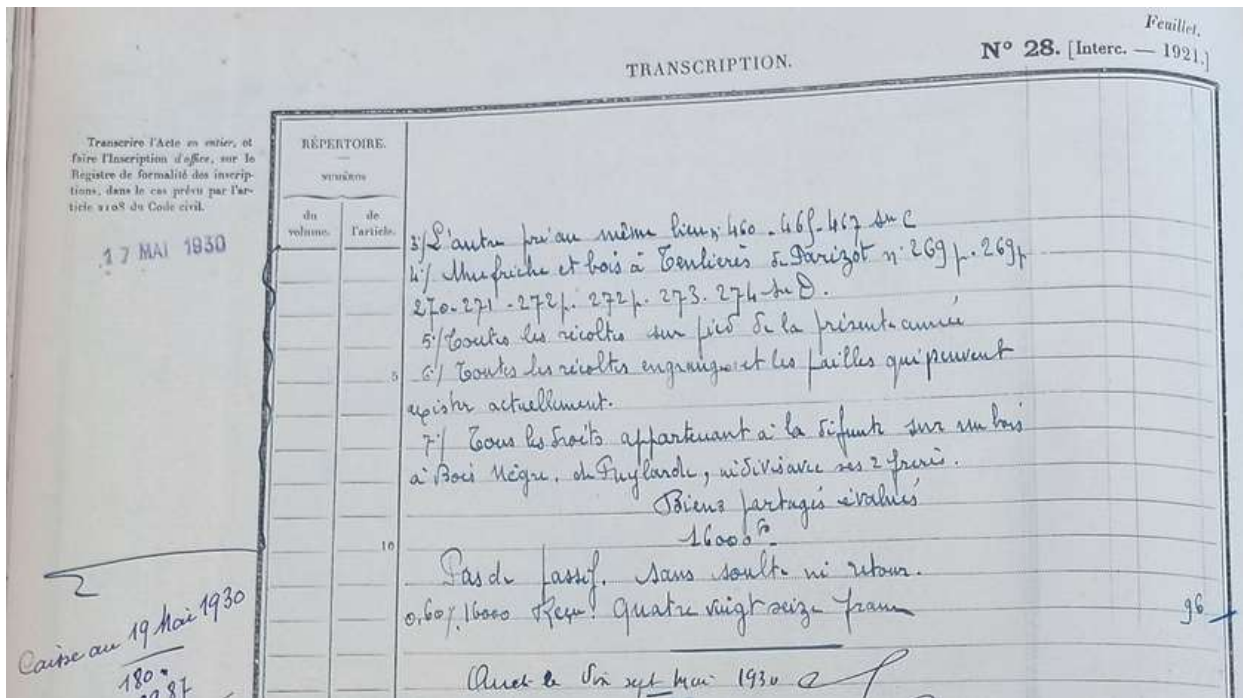 Feuillet.
TRANSCRIPTION.
N° 28. [Interc. — 1921.]
Transcrire l'Acte en entier, et
faire l'Inscription d'office, sur le
Registre de formalité des inscrip-
tions, dans le cas prévu par l'ar-
ticle 2108 du Code civil.
RÉPERTOIRE.
NUMÉROS
du volume.
de l'article.
17 MAI 1930
3°/ L'autre pré au même lieu n° 460 - 465 - 467 son C
4°/ friche et bois à de Parizot n° 269 p. 269 p
270 - 271 - 272 p. 272 p. 273. 274 son D.
5°/ Toutes les récoltes sur pied de la présente année
5
6°/ Toutes les récoltes engrangées et les pailles qui peuvent
exister actuellement.
7°/ Tous les droits appartenant à la défunte sur un bois
à Bois Nègre, de Puylarde, indivis avec ses 2 frères.
Biens partagés évalués
16000 fr
10
Pas de passif. Sans soulte ni retour.
0,60 % 16000 Reçu: Quatre vingt seize francs
96
Caisse au 19 Mai 1930
180
87
le dix sept mai 1930